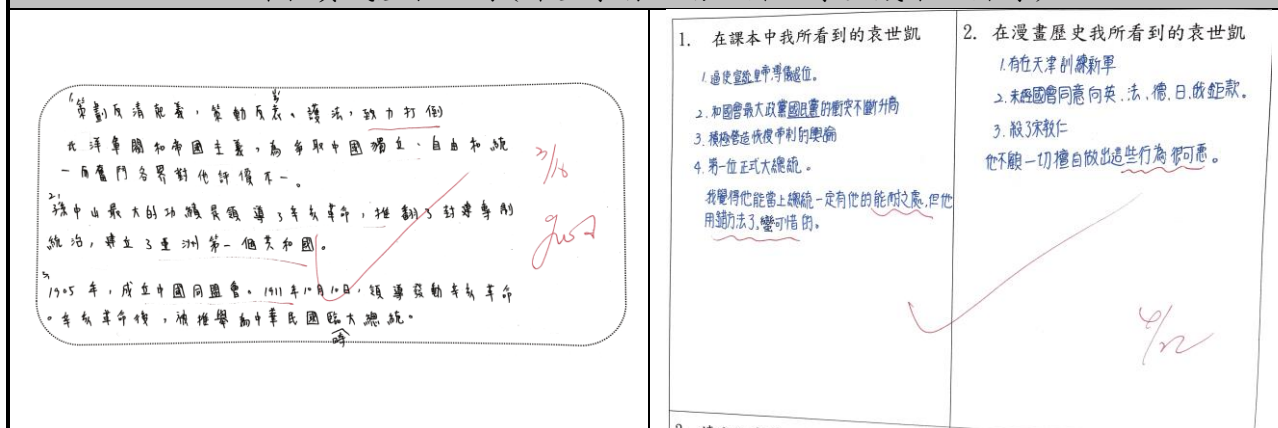 1. 策劃反清起義,策動反袁、護法,致力打倒
北洋軍閥和帝國主義,為爭取中國獨立、自由和統
一而奮鬥各界對他評價不一。
2. 孫中山最大的功績是領導了辛亥革命,推翻了封建專制
統治,建立了亞洲第一個共和國。
3. 1905年,成立中國同盟會。1911年10月10日,領導發動辛亥革命
。辛亥革命後,被推舉為中華民國臨大總統。
時
3/18
1. 在課本中我所看到的袁世凱
1. 逼使宣統皇帝溥儀退位。
2. 和國會最大政黨國民黨的衝突不斷升高
3. 積極營造恢復帝制的輿論
4. 第一位正式大總統。
我覺得他能當上總統一定有他的能耐之處,但他
用錯方法了,蠻可惜的。
2. 在漫畫歷史我所看到的袁世凱
1. 有在天津訓練新軍
2. 未經國會同意向英、法、德、日、俄鉅款。
3. 殺了宋教仁
他不顧一切擅自做出這些行為很可惡。
4/22